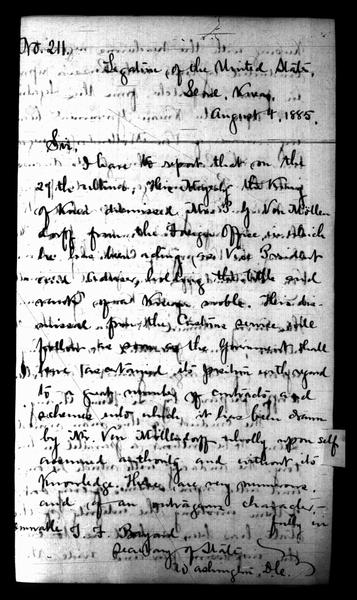 No. 211.
Legation of the United States,
Seoul, Korea,
August 4, 1885.
Sir,
I have to report that on the
27th ultimo, His Majesty the King
of Korea dismissed Mr. P. G. Von Möllen
dorff from the Foreign Office, in which
he has been acting as Vice President
and Adviser, holding the title and
rank of a Korean noble. His dis-
missal from the Customs service will
follow as soon as the Government shall
have ascertained its position with regard
to a great number of contracts and
schemes into which it has been drawn
by Mr. Von Möllendorff wholly upon self
assumed authority and without its
Knowledge. These are very numerous
and of an outrageous character,
fully in
Honorable T. F. Bayard
Secretary of State
Washington, D.C.